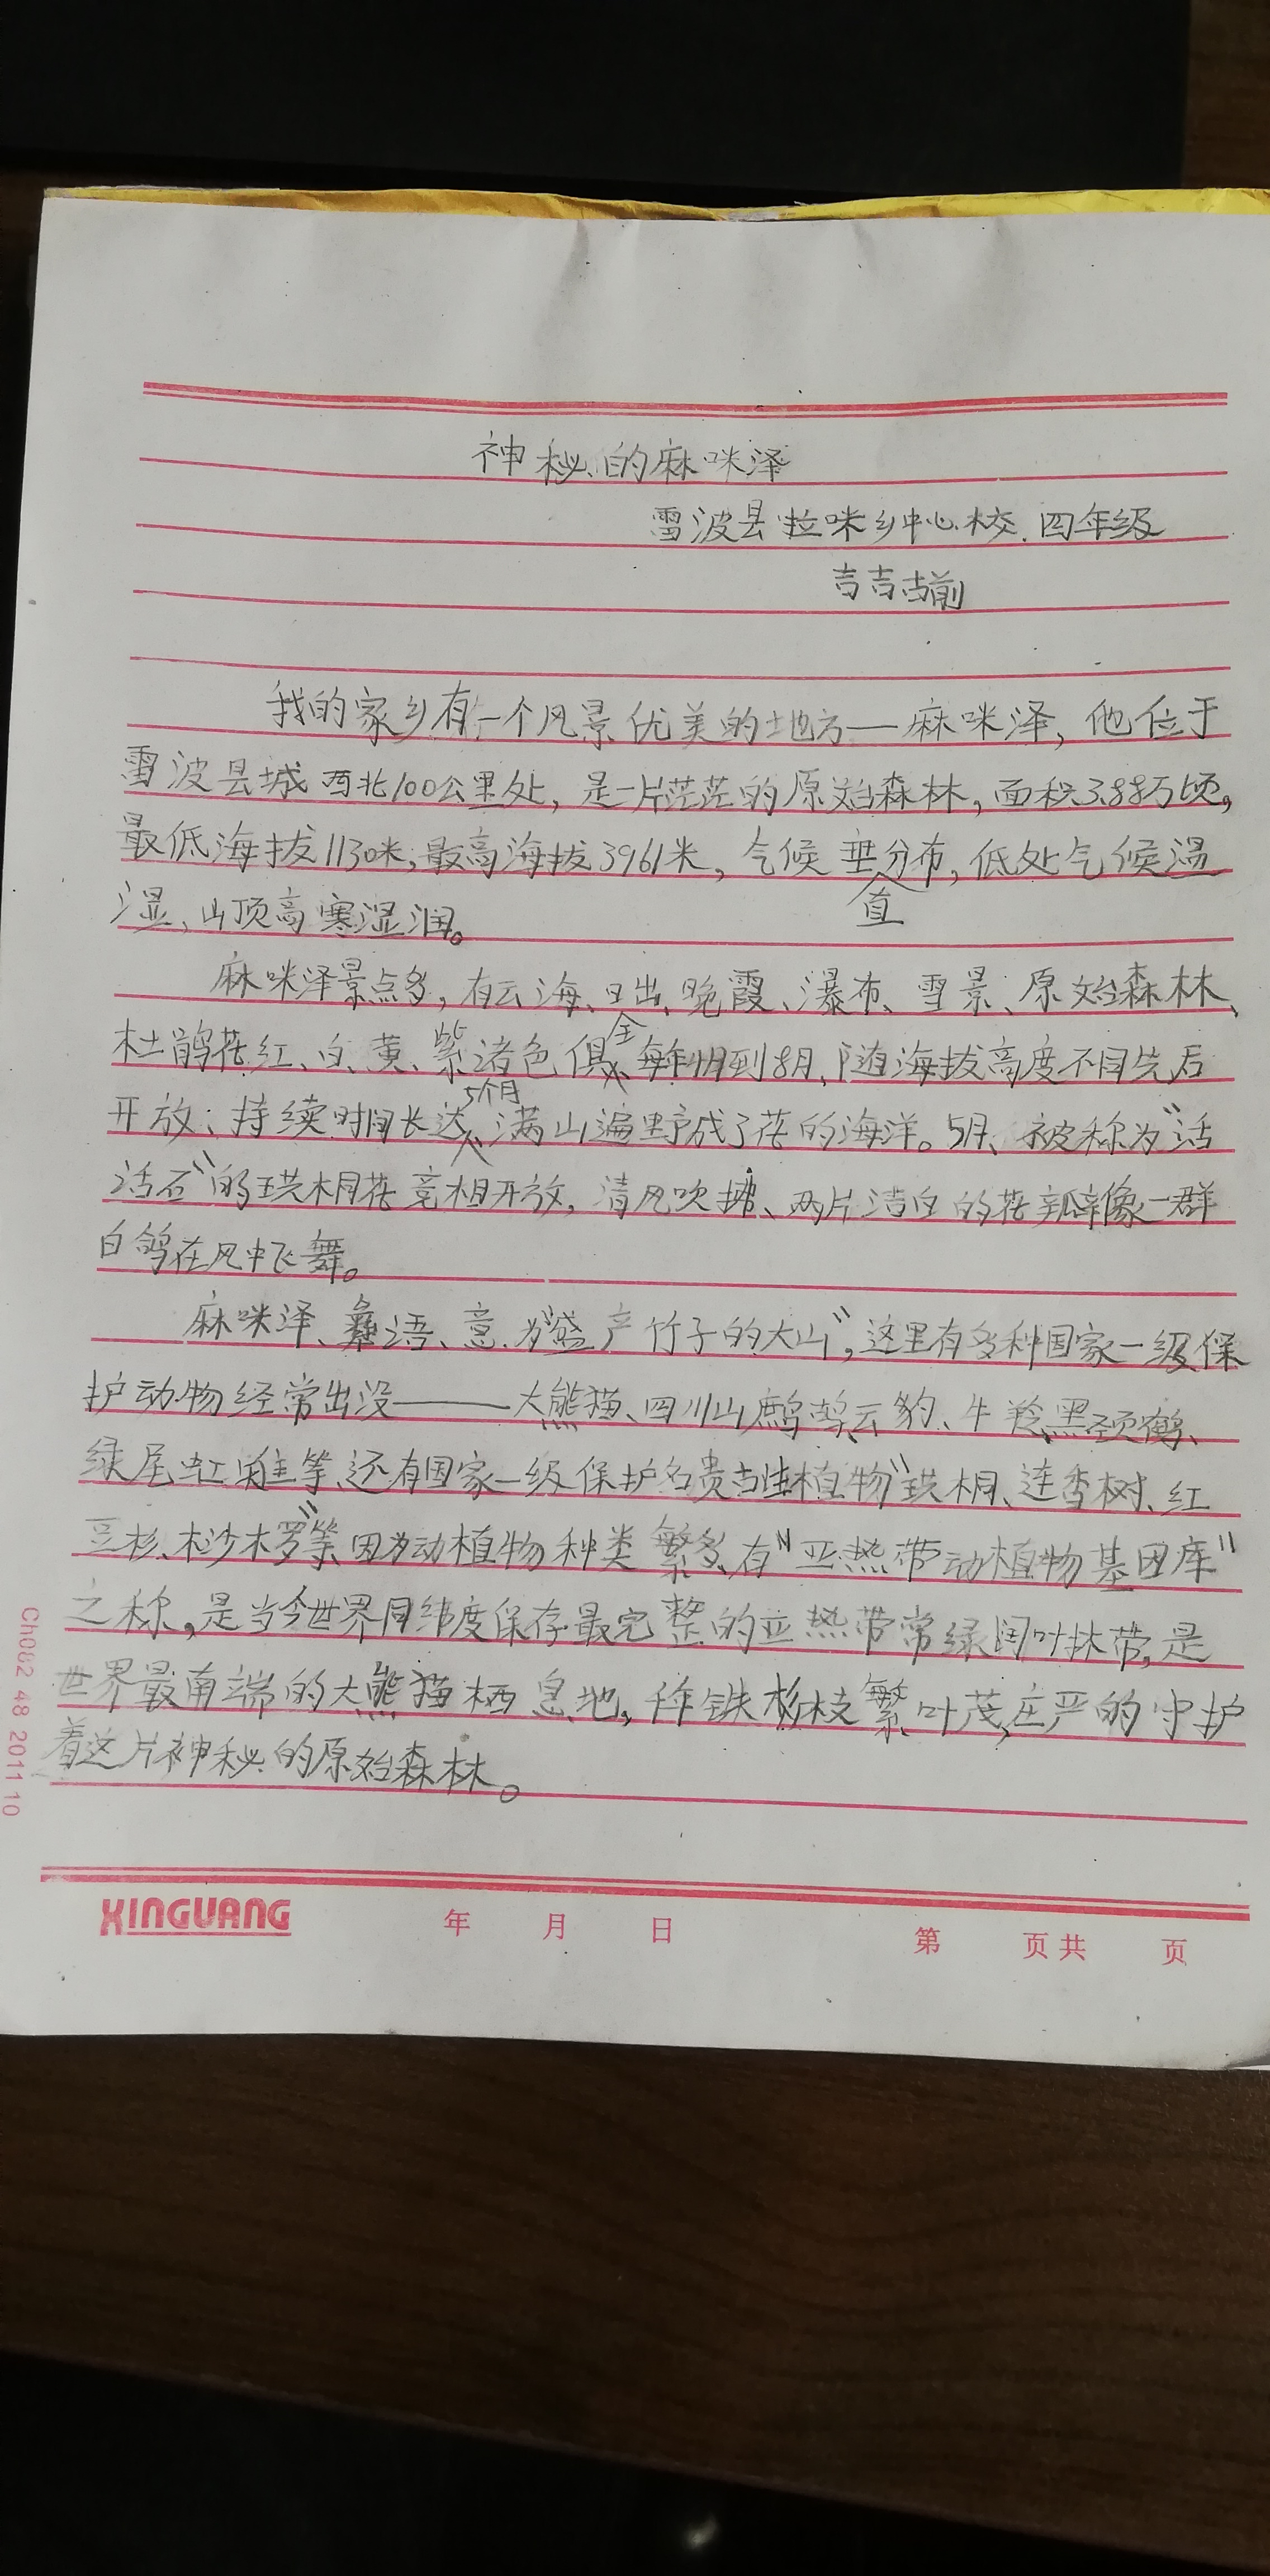 神秘的麻咪泽
雷波县拉咪乡中心校.四年级
吉吉古前
我的家乡有一个风景优美的地方——麻咪泽，他位于
雷波县城西北100公里处，是一片茫茫的原始森林，面积3.88万顷，
最低海拔1130米，最高海拔3961米，气候垂直分布，低处气候温
湿、山顶高寒湿润。
麻咪泽景点多，有云海、日出、晚霞、瀑布、雪景、原始森林、
杜鹃花红、白、黄、紫诸色俱全 每年4月到8月，随海拔高度不同先后
开放；持续时间长达5个月、满山遍野成了花的海洋。5月、被称为“活
活石”的珙桐花竞相开放，清风吹拂、两片洁白的花瓣像一群
白鸽在风中飞舞。
麻咪泽、彝语、意为“盛产竹子的大山”，这里有多种国家一级保
护动物经常出没——大熊猫、四川山鹧鸪、云豹、牛羚、黑颈鹤、
绿尾虹雉等、还有国家一级保护名贵植物“珙桐、连香树、红
豆杉、桫木罗”等、因为动植物种类繁多、有“亚热带动植物基因库”
之称，是当今世界同纬度保存最完整的亚热带常绿阔叶林带，是
世界最南端的大熊猫栖息地，铁杉枝繁叶茂，庄严的守护
着这片神秘的原始森林。
XINGUANG 年 月 日 第 页共 页
Ch082 48 2011 10